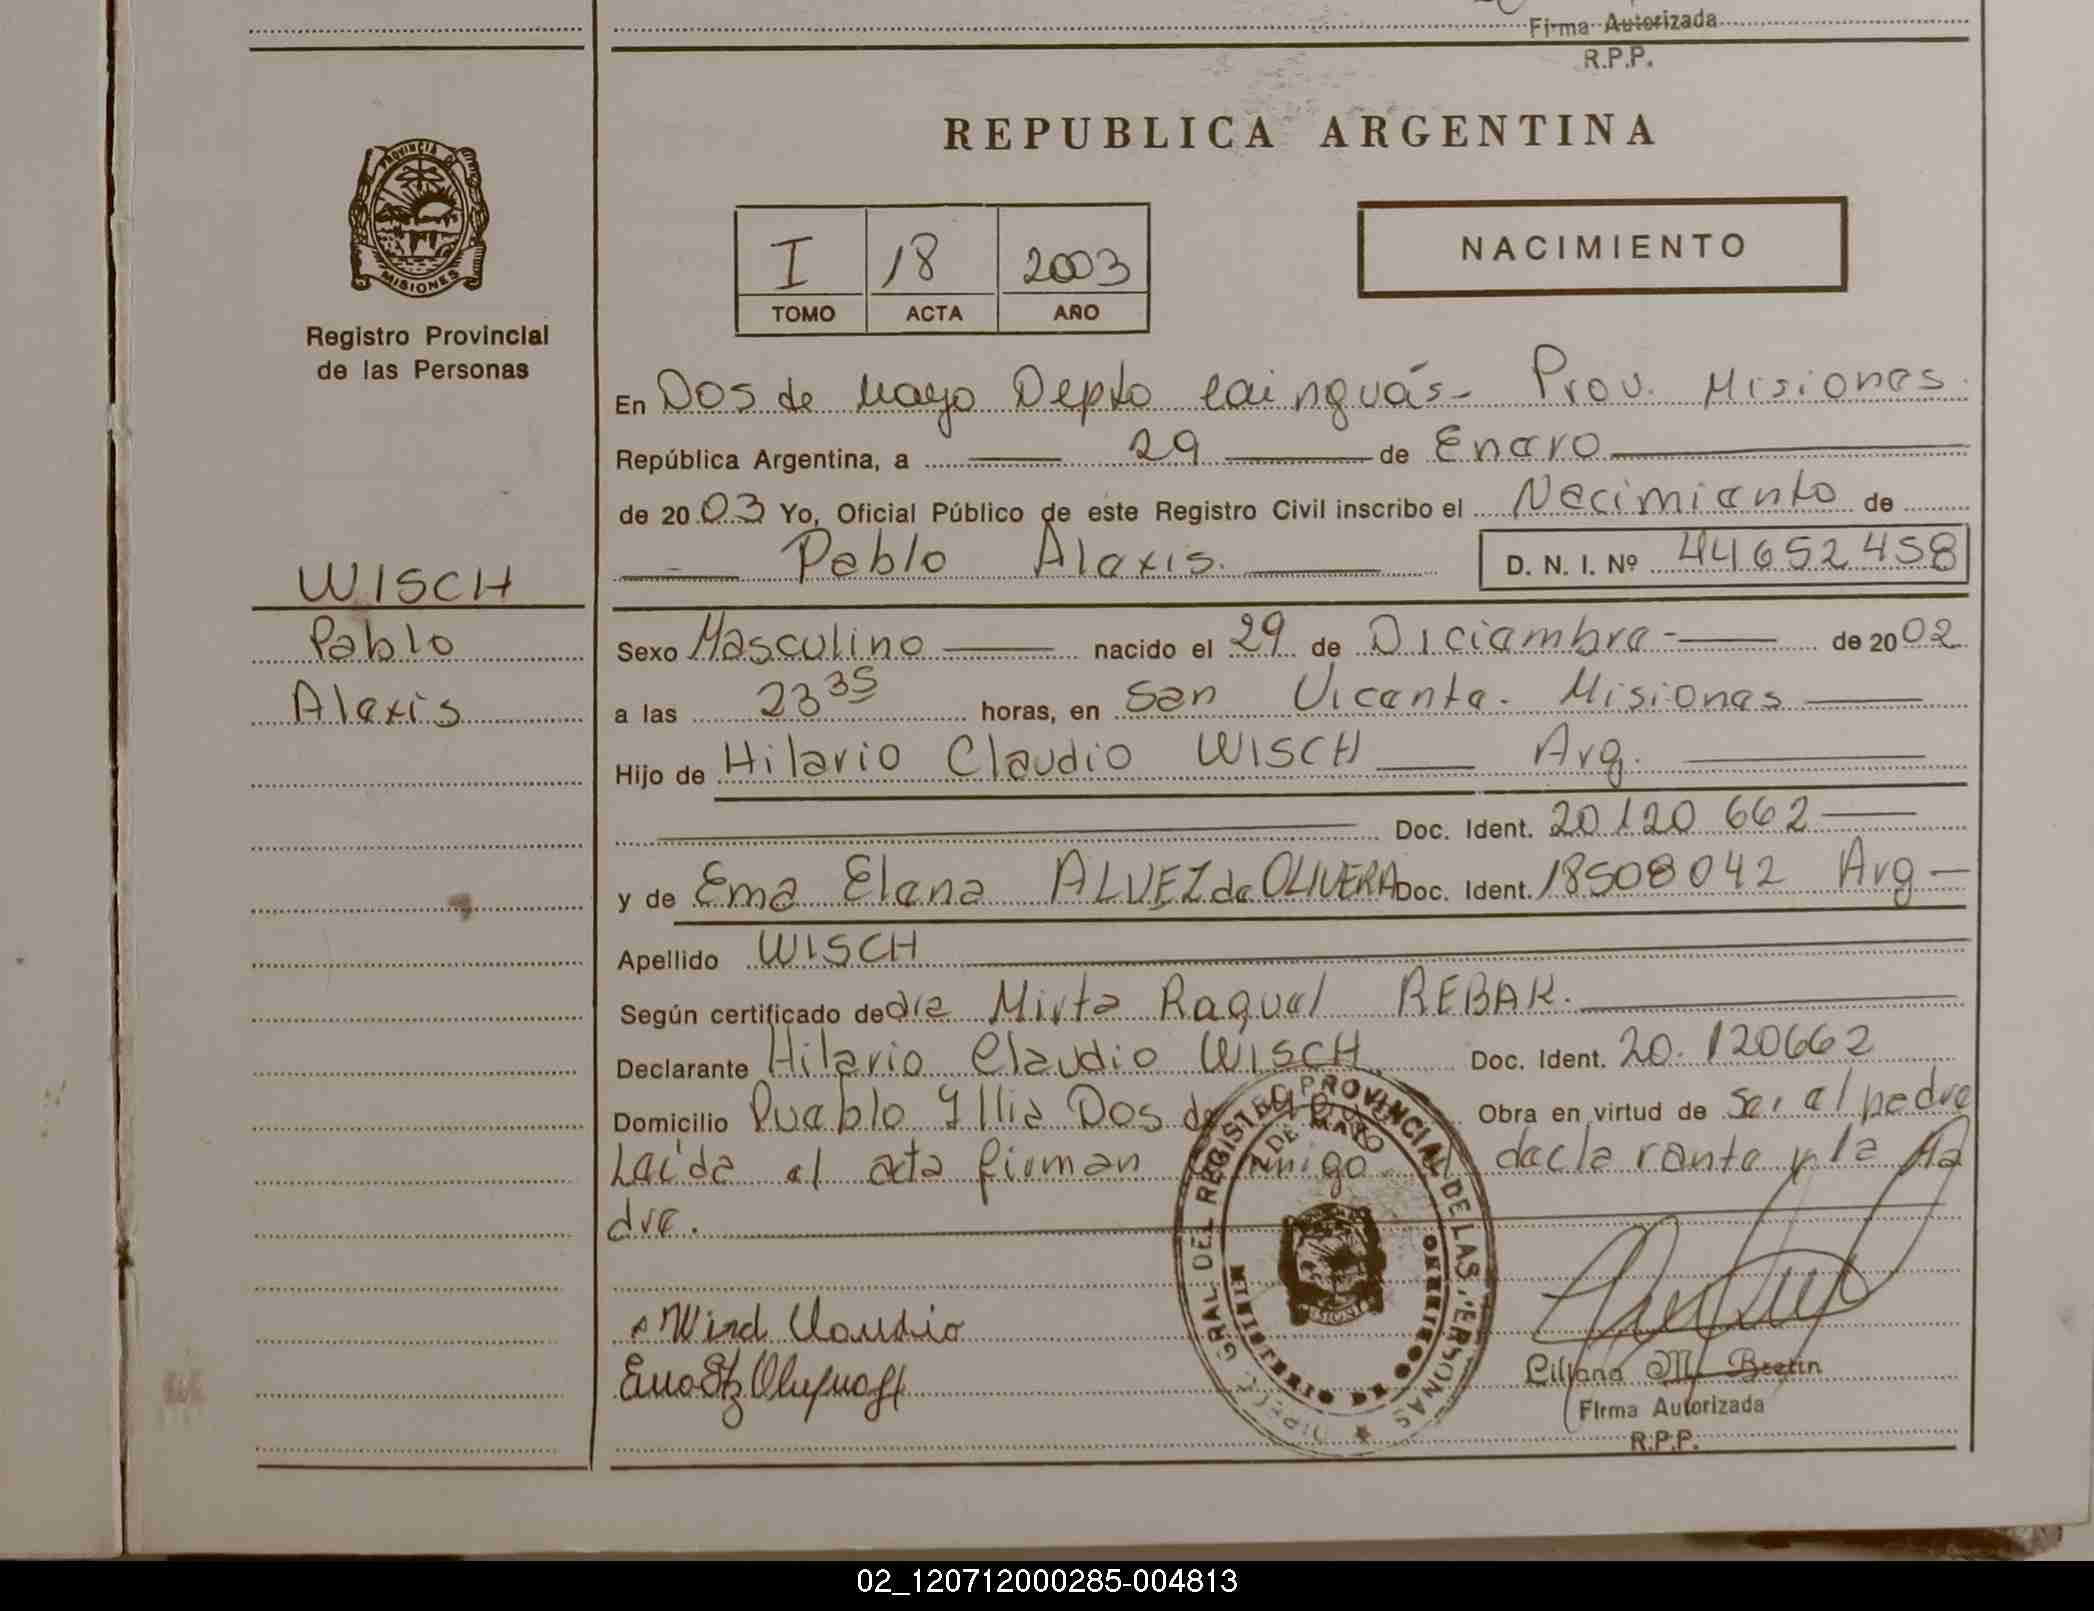 Firma Autorizada
R.P.P.
REPUBLICA ARGENTINA
PROVINCIA DE
MISIONES
Registro Provincial
de las Personas
I 18 2003
TOMO ACTA AÑO
NACIMIENTO
En Dos de Mayo Depto Cainguás - Prov. Misiones.
República Argentina, a 29 de Enero
de 2003 Yo, Oficial Público de este Registro Civil inscribo el Nacimiento de
Pablo Alexis. D. N. I. Nº 44652458
WISCH
Pablo
Alexis
Sexo Masculino nacido el 29 de Diciembre - de 2002
a las 23 35 horas, en San Vicente. Misiones
Hijo de Hilario Claudio WISCH Arg.
Doc. Ident. 20120 662
y de Ema Elena ALVEZ de OLIVERA Doc. Ident. 18508042 Arg
Apellido WISCH
Según certificado de dra Mirta Raquel REBAK.
Declarante Hilario Claudio WISCH Doc. Ident. 20.120662
Domicilio Pueblo Yllia Dos de Obra en virtud de Ser el padre
Leída el acta firman declarante y la Ma
dre.
GRAL DEL REGISTRO PROVINCIAL DE LAS PERSONAS
2 DE MAYO
MINISTERIO DE GOBIERNO
Liliana M. Bretin
Firma Autorizada
R.P.P.
02_120712000285-004813